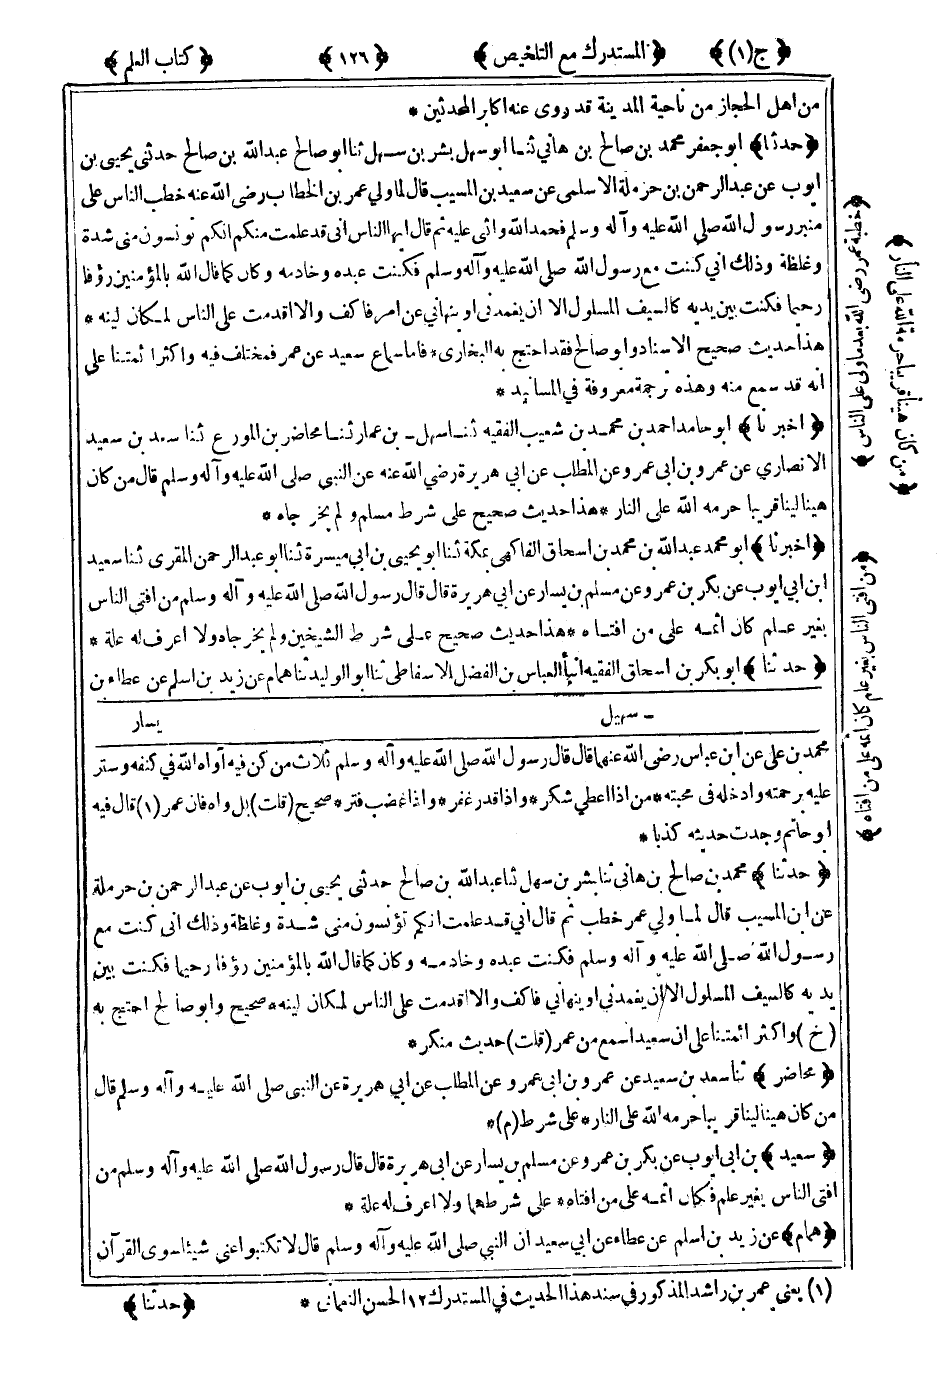 ﴿ ج (١) ﴾ ﴿ المستدرك مع التلخيص ﴾ ﴿ ١٢٦ ﴾ ﴿ كتاب العلم ﴾
من اهل الحجاز من ناحية المدينة قد روى عنه اكابر المحدثين *
﴿ حدثنا ﴾ ابو جعفر محمد بن صالح بن هاني ثنا ابو سهل بشر بن سهل ثنا ابو صالح عبد الله بن صالح حدثنى يحيى بن
ايوب عن عبد الرحمن بن حرملة الاسلمى عن سعيد بن المسيب قال لما ولي عمر بن الخطاب رضى الله عنه خطب الناس على
منبر رسول الله صلى الله عليه وآله وسلم فحمد الله واثنى عليه ثم قال ايها الناس انى قد علمت منكم انكم تونسون منى شدة
وغلظة وذلك اني كنت مع رسول الله صلى الله عليه وآله وسلم فكنت عبده وخادمه وكان كما قال الله بالمؤمنين رؤفا
رحيما فكنت بين يديه كالسيف المسلول الا ان يغمدنى او ينهاني عن امر فاكف والا اقدمت على الناس لمكان لينه *
هذا حديث صحيح الاسناد وابو صالح فقد احتج به البخارى * فاما سماع سعيد عن عمر فمختلف فيه واكثر ائمتنا على
انه قد سمع منه وهذه ترجمة معروفة في المسانيد *
﴿ اخبرنا ﴾ ابو حامد احمد بن محمد بن شعيب الفقيه ثنا سهل ـ بن عمار ثنا محاضر بن المورع ثنا سعد بن سعيد
الانصاري عن عمرو بن ابى عمرو عن المطلب عن ابي هريرة رضي الله عنه عن النبي صلى الله عليه وآله وسلم قال من كان
هينا لينا قريبا حرمه الله على النار * هذا حديث صحيح على شرط مسلم ولم يخرجاه *
﴿ اخبرنا ﴾ ابو محمد عبد الله بن محمد بن اسحاق الفاكهى بمكة ثنا ابو يحيى بن ابي ميسرة ثنا ابو عبد الرحمن المقرى ثنا سعيد
ابن ابي ايوب عن بكر بن عمرو عن مسلم بن يسار عن ابي هريرة قال قال رسول الله صلى الله عليه وآله وسلم من افتى الناس
بغير علم كان اثمه على من افتاه * هذا حديث صحيح على شرط الشيخين ولم يخرجاه ولا اعرف له علة *
﴿ حدثنا ﴾ ابو بكر بن اسحاق الفقيه انبأ العباس بن الفضل الاسفاطى ثنا ابو الوليد ثنا همام عن زيد بن اسلم عن عطاء بن
ـ سهيل
يسار
محمد بن على عن ابن عباس رضى الله عنهما قال قال رسول الله صلى الله عليه وآله وسلم ثلاث من كن فيه آواه الله في كنفه وستر
عليه برحمته وادخله فى محبته * من اذا اعطي شكر * واذا قدر غفر * واذا غضب فتر * صحيح (قلت) بل واه فان عمر (١) قال فيه
ابو حاتم وجدت حديثه كذبا *
﴿ حدثنا ﴾ محمد بن صالح بن هانى ثنا بشر بن سهل ثنا عبد الله بن صالح حدثني يحيى بن ايوب عن عبد الرحمن بن حرملة
عن ابن المسيب قال لما ولي عمر خطب ثم قال اني قد علمت انكم تؤنسون منى شدة وغلظة وذلك انى كنت مع
رسول الله صلى الله عليه وآله وسلم فكنت عبده وخادمه وكان كما قال الله بالمؤمنين رؤفا رحيما فكنت بين
يديه كالسيف المسلول الا ان يغمدني او ينهاني فاكف والا اقدمت على الناس لمكان لينه * صحيح وابو صالح احتج به
(خ) واكثر ائمتنا على ان سعيدا سمع من عمر (قلت) حديث منكر *
﴿ محاضر ﴾ ثنا سعد بن سعيد عن عمرو بن ابى عمرو عن المطلب عن ابي هريرة عن النبى صلى الله عليه وآله وسلم قال
من كان هينا لينا قريبا حرمه الله على النار * على شرط (م) *
﴿ سعيد ﴾ بن ابى ايوب عن بكر بن عمرو عن مسلم بن يسار عن ابى هريرة قال قال رسول الله صلى الله عليه وآله وسلم من
افتى الناس بغير علم فكان اثمه على من افتاه * على شرطهما ولا اعرف له علة *
﴿ همام ﴾ عن زيد بن اسلم عن عطاء عن ابي سعيد ان النبي صلى الله عليه وآله وسلم قال لا تكتبوا عنى شيئا سوى القرآن
(١) يعنى عمر بن راشد المذكور في سند هذا الحديث في المستدرك ١٢ الحسن النعمانى *
﴿ حدثنا ﴾
﴿ خطبة عمر رضى الله بعد ما ولى على الناس ﴾
﴿ من كان هينا قريبا حرمه الله على النار ﴾
﴿ من افتى الناس بغير علم كان اثمه على من افتاه ﴾